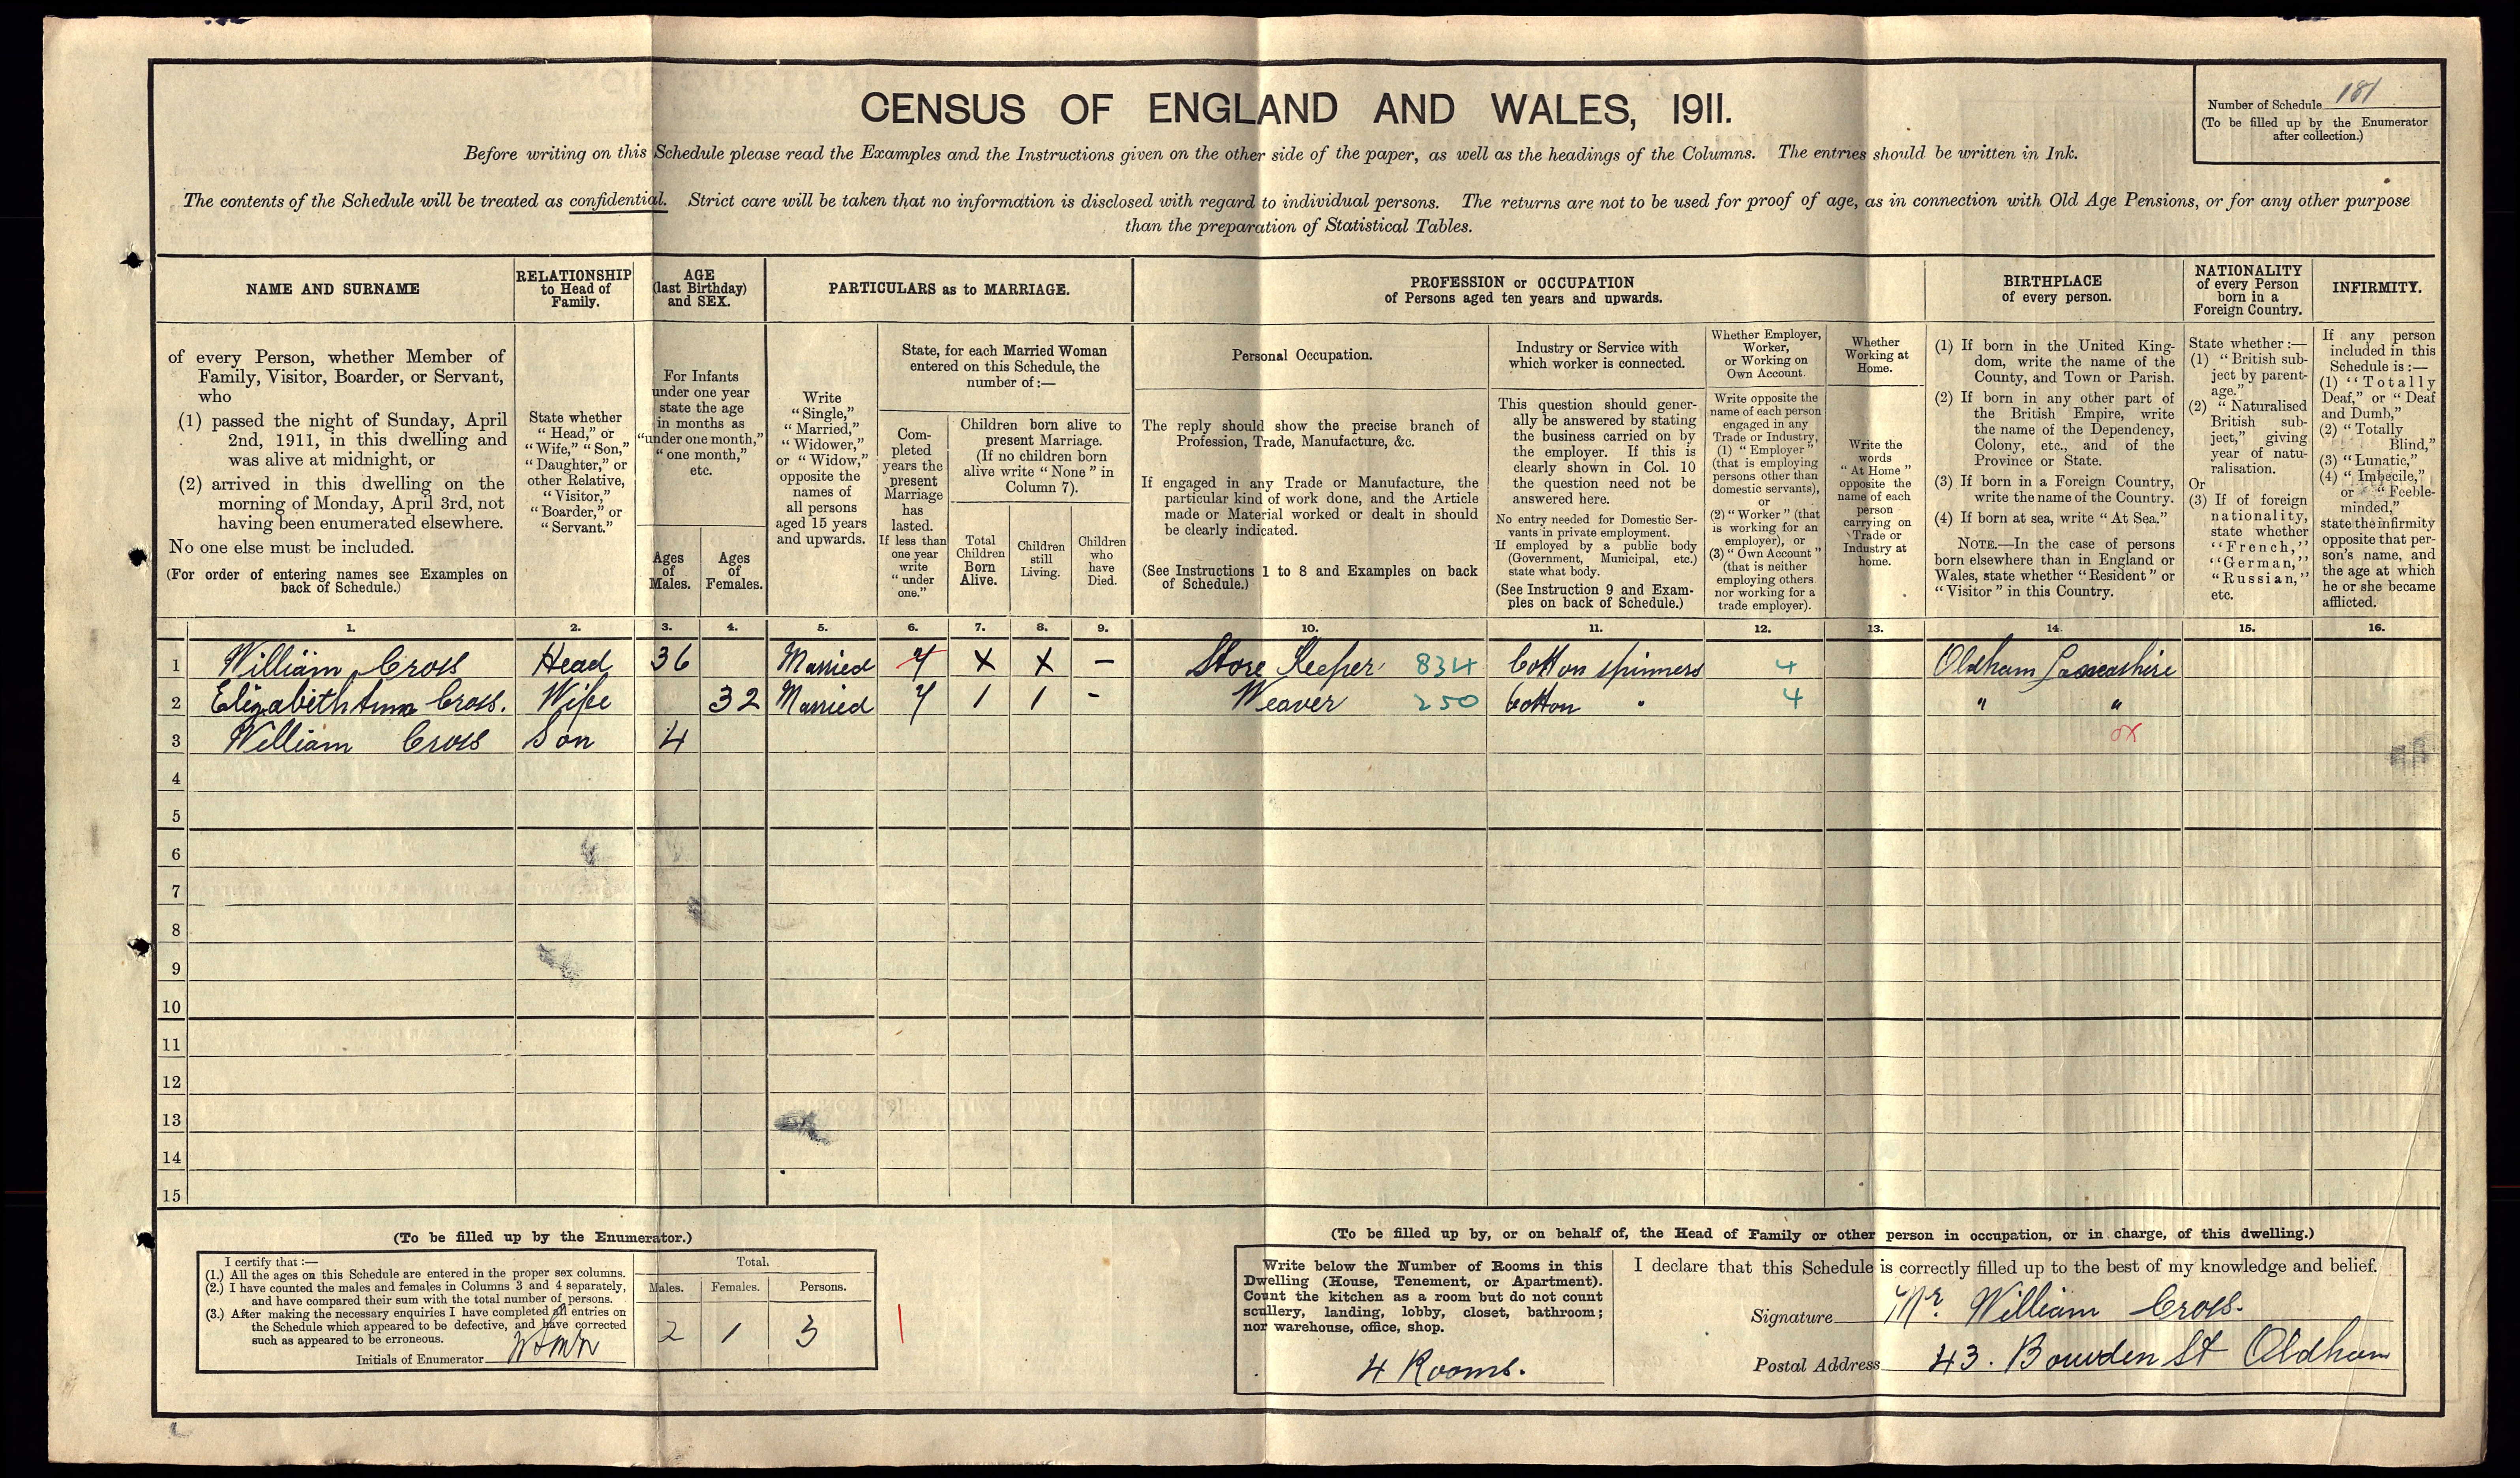 CENSUS OF ENGLAND AND WALES, 1911.
Number of Schedule 181
(To be filled up by the Enumerator
after collection.)
Before writing on this Schedule please read the Examples and the Instructions given on the other side of the paper, as well as the headings of the Columns. The entries should be written in Ink.
The contents of the Schedule will be treated as confidential. Strict care will be taken that no information is disclosed with regard to individual persons. The returns are not to be used for proof of age, as in connection with Old Age Pensions, or for any other purpose
than the preparation of Statistical Tables.
NAME AND SURNAME
of every Person, whether Member of
Family, Visitor, Boarder, or Servant,
who
(1) passed the night of Sunday, April
2nd, 1911, in this dwelling and
was alive at midnight, or
(2) arrived in this dwelling on the
morning of Monday, April 3rd, not
having been enumerated elsewhere.
No one else must be included.
(For order of entering names see Examples on
back of Schedule.)
RELATIONSHIP
to Head of
Family.
State whether
"Head," or
"Wife," "Son,"
"Daughter," or
other Relative,
"Visitor,"
"Boarder," or
"Servant."
AGE
(last Birthday)
and SEX.
For Infants
under one year
state the age
in months as
"under one month,"
"one month,"
etc.
Ages
of
Males.
Ages
of
Females.
PARTICULARS as to MARRIAGE.
Write
"Single,"
"Married,"
"Widower,"
or "Widow,"
opposite the
names of
all persons
aged 15 years
and upwards.
State, for each Married Woman
entered on this Schedule, the
number of:—
Com-
pleted
years the
present
Marriage
has
lasted.
If less than
one year
write
"under
one."
Children born alive to
present Marriage.
(If no children born
alive write "None" in
Column 7).
Total
Children
Born
Alive.
Children
still
Living.
Children
who
have
Died.
PROFESSION or OCCUPATION
of Persons aged ten years and upwards.
Personal Occupation.
The reply should show the precise branch of
Profession, Trade, Manufacture, &c.
If engaged in any Trade or Manufacture, the
particular kind of work done, and the Article
made or Material worked or dealt in should
be clearly indicated.
(See Instructions 1 to 8 and Examples on back
of Schedule.)
Industry or Service with
which worker is connected.
This question should gener-
ally be answered by stating
the business carried on by
the employer. If this is
clearly shown in Col. 10
the question need not be
answered here.
No entry needed for Domestic Ser-
vants in private employment.
If employed by a public body
(Government, Municipal, etc.)
state what body.
(See Instruction 9 and Exam-
ples on back of Schedule.)
Whether Employer,
Worker,
or Working on
Own Account.
Write opposite the
name of each person
engaged in any
Trade or Industry,
(1) "Employer"
(that is employing
persons other than
domestic servants),
or
(2) "Worker" (that
is working for an
employer), or
(3) "Own Account"
(that is neither
employing others
nor working for a
trade employer).
Whether
Working at
Home.
Write the
words
"At Home"
opposite the
name of each
person
carrying on
Trade or
Industry at
home.
BIRTHPLACE
of every person.
(1) If born in the United King-
dom, write the name of the
County, and Town or Parish.
(2) If born in any other part of
the British Empire, write
the name of the Dependency,
Colony, etc., and of the
Province or State.
(3) If born in a Foreign Country,
write the name of the Country.
(4) If born at sea, write "At Sea."
NOTE.—In the case of persons
born elsewhere than in England or
Wales, state whether "Resident" or
"Visitor" in this Country.
NATIONALITY
of every Person
born in a
Foreign Country.
State whether:—
(1) "British sub-
ject by parent-
age."
(2) "Naturalised
British sub-
ject," giving
year of natu-
ralisation.
Or
(3) If of foreign
nationality,
state whether
"French,"
"German,"
"Russian,"
etc.
INFIRMITY.
If any person
included in this
Schedule is:—
(1) "Totally
Deaf," or "Deaf
and Dumb,"
(2) "Totally
Blind,"
(3) "Lunatic,"
(4) "Imbecile,"
or "Feeble-
minded,"
state the infirmity
opposite that per-
son's name, and
the age at which
he or she became
afflicted.
1. 2. 3. 4. 5. 6. 7. 8. 9. 10. 11. 12. 13. 14. 15. 16.
1 William Cross Head 36 Married 7 X X – Store Keeper 834 Cotton spinners 4 Oldham Lancashire
2 Elizabeth Ann Cross. Wife 32 Married 7 1 1 – Weaver 250 Cotton " 4 " "
3 William Cross Son 4 ox
4
5
6
7
8
9
10
11
12
13
14
15
(To be filled up by the Enumerator.)
I certify that:—
(1.) All the ages on this Schedule are entered in the proper sex columns.
(2.) I have counted the males and females in Columns 3 and 4 separately,
and have compared their sum with the total number of persons.
(3.) After making the necessary enquiries I have completed all entries on
the Schedule which appeared to be defective, and have corrected
such as appeared to be erroneous.
Initials of Enumerator
Total.
Males. Females. Persons.
2 1 3
(To be filled up by, or on behalf of, the Head of Family or other person in occupation, or in charge, of this dwelling.)
Write below the Number of Rooms in this
Dwelling (House, Tenement, or Apartment).
Count the kitchen as a room but do not count
scullery, landing, lobby, closet, bathroom;
nor warehouse, office, shop.
4 Rooms.
I declare that this Schedule is correctly filled up to the best of my knowledge and belief.
Signature Mr. William Cross.
Postal Address 43. Bowden St Oldham